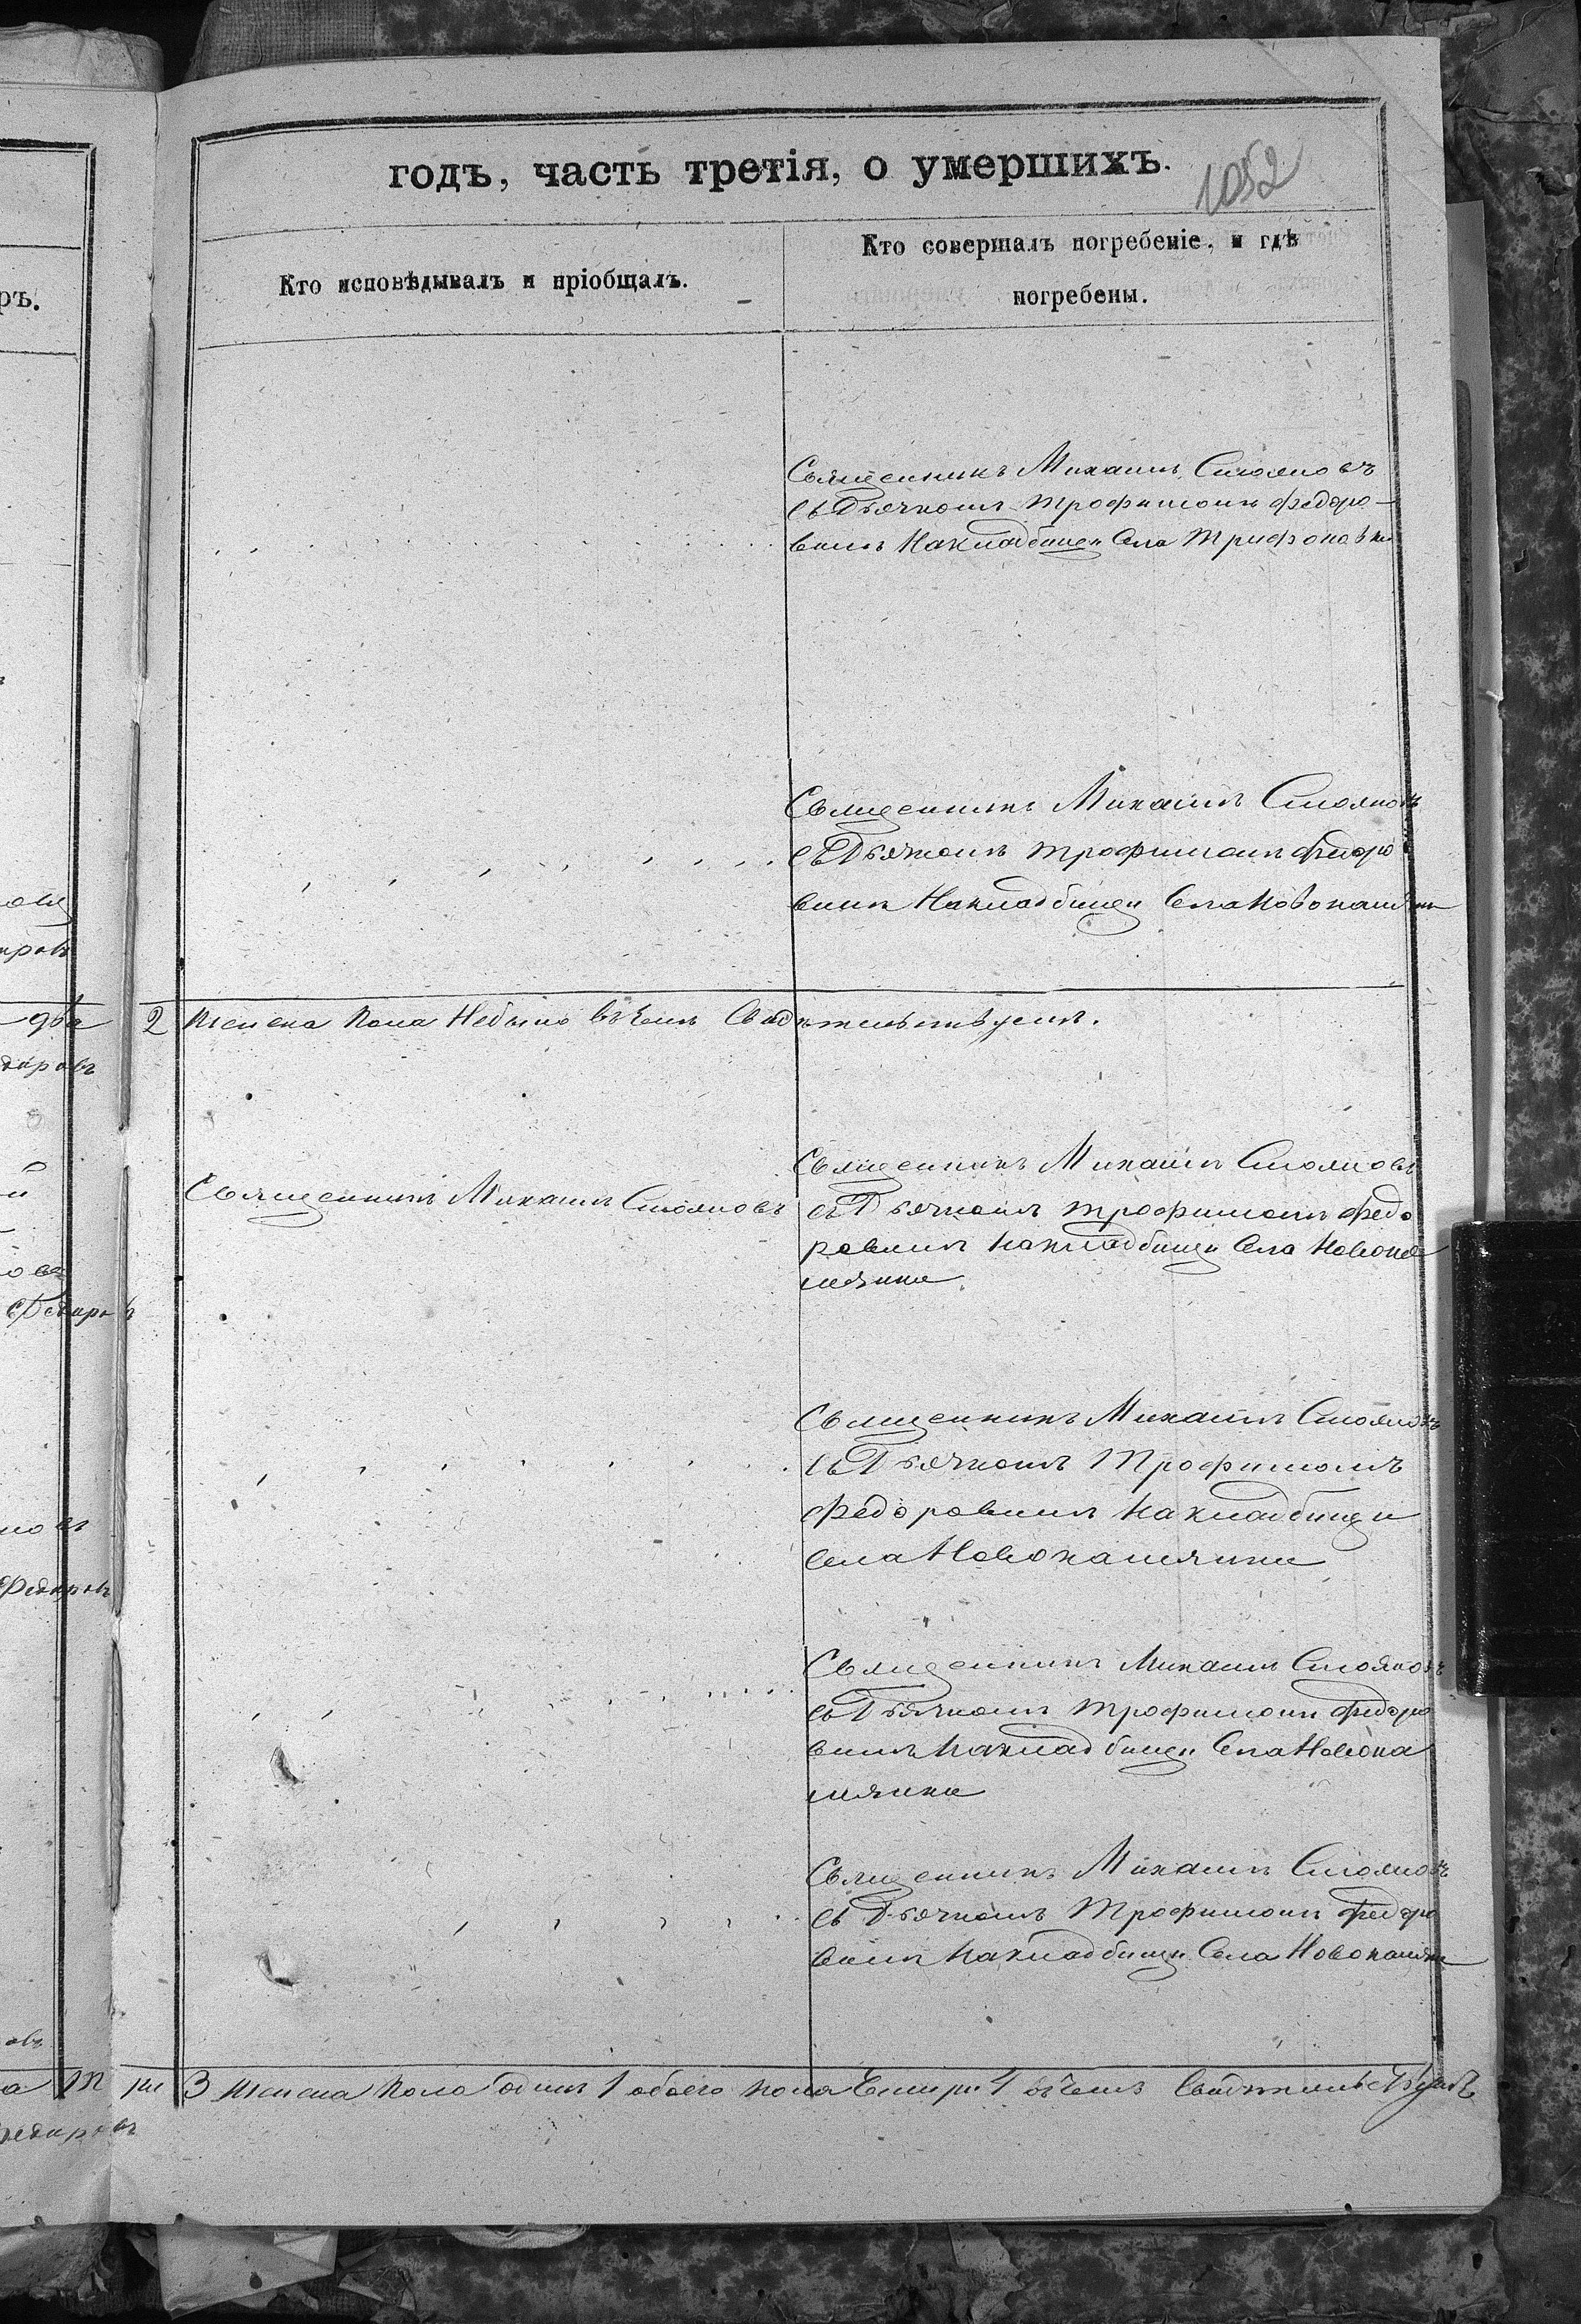 годъ, часть третія, о умершихъ.
1052
Кто исповѣдывалъ и пріобщалъ.
Кто совершалъ погребеніе, и гдѣ
погребены.
Священникъ Михаилъ Стояновъ
съ Дьячкомъ Трофимомъ Федоро-
вымъ На кладбищи Села Трифоновки
Священникъ Михаилъ Стояновъ
съ Дьячкомъ Трофимомъ Федоро
вымъ На кладбищи Села Новокамянки
2 женска пола Небыло въ чемъ Свидѣтельствуемъ.
Священникъ Михаилъ Стояновъ
Священникъ Михаилъ Стояновъ
съ Дьячкомъ Трофимомъ Федо
ровымъ На кладбищи Села Новока
мянки
Священникъ Михаилъ Стояновъ
съ Дьячкомъ Трофимомъ
Федоровымъ На кладбищи
Села Новокамянки
Священникъ Михаилъ Стояновъ
съ Дьячкомъ Трофимомъ Федоро
вымъ На кладбищи Села Новока
мянки
Священникъ Михаилъ Стояновъ
съ Дьячкомъ Трофимомъ Федоро
вымъ На кладбищи Села Новокамян
три 3 женска пола одинъ 1 обоего пола Четыри 4 въ чемъ Свидѣтельствуемъ